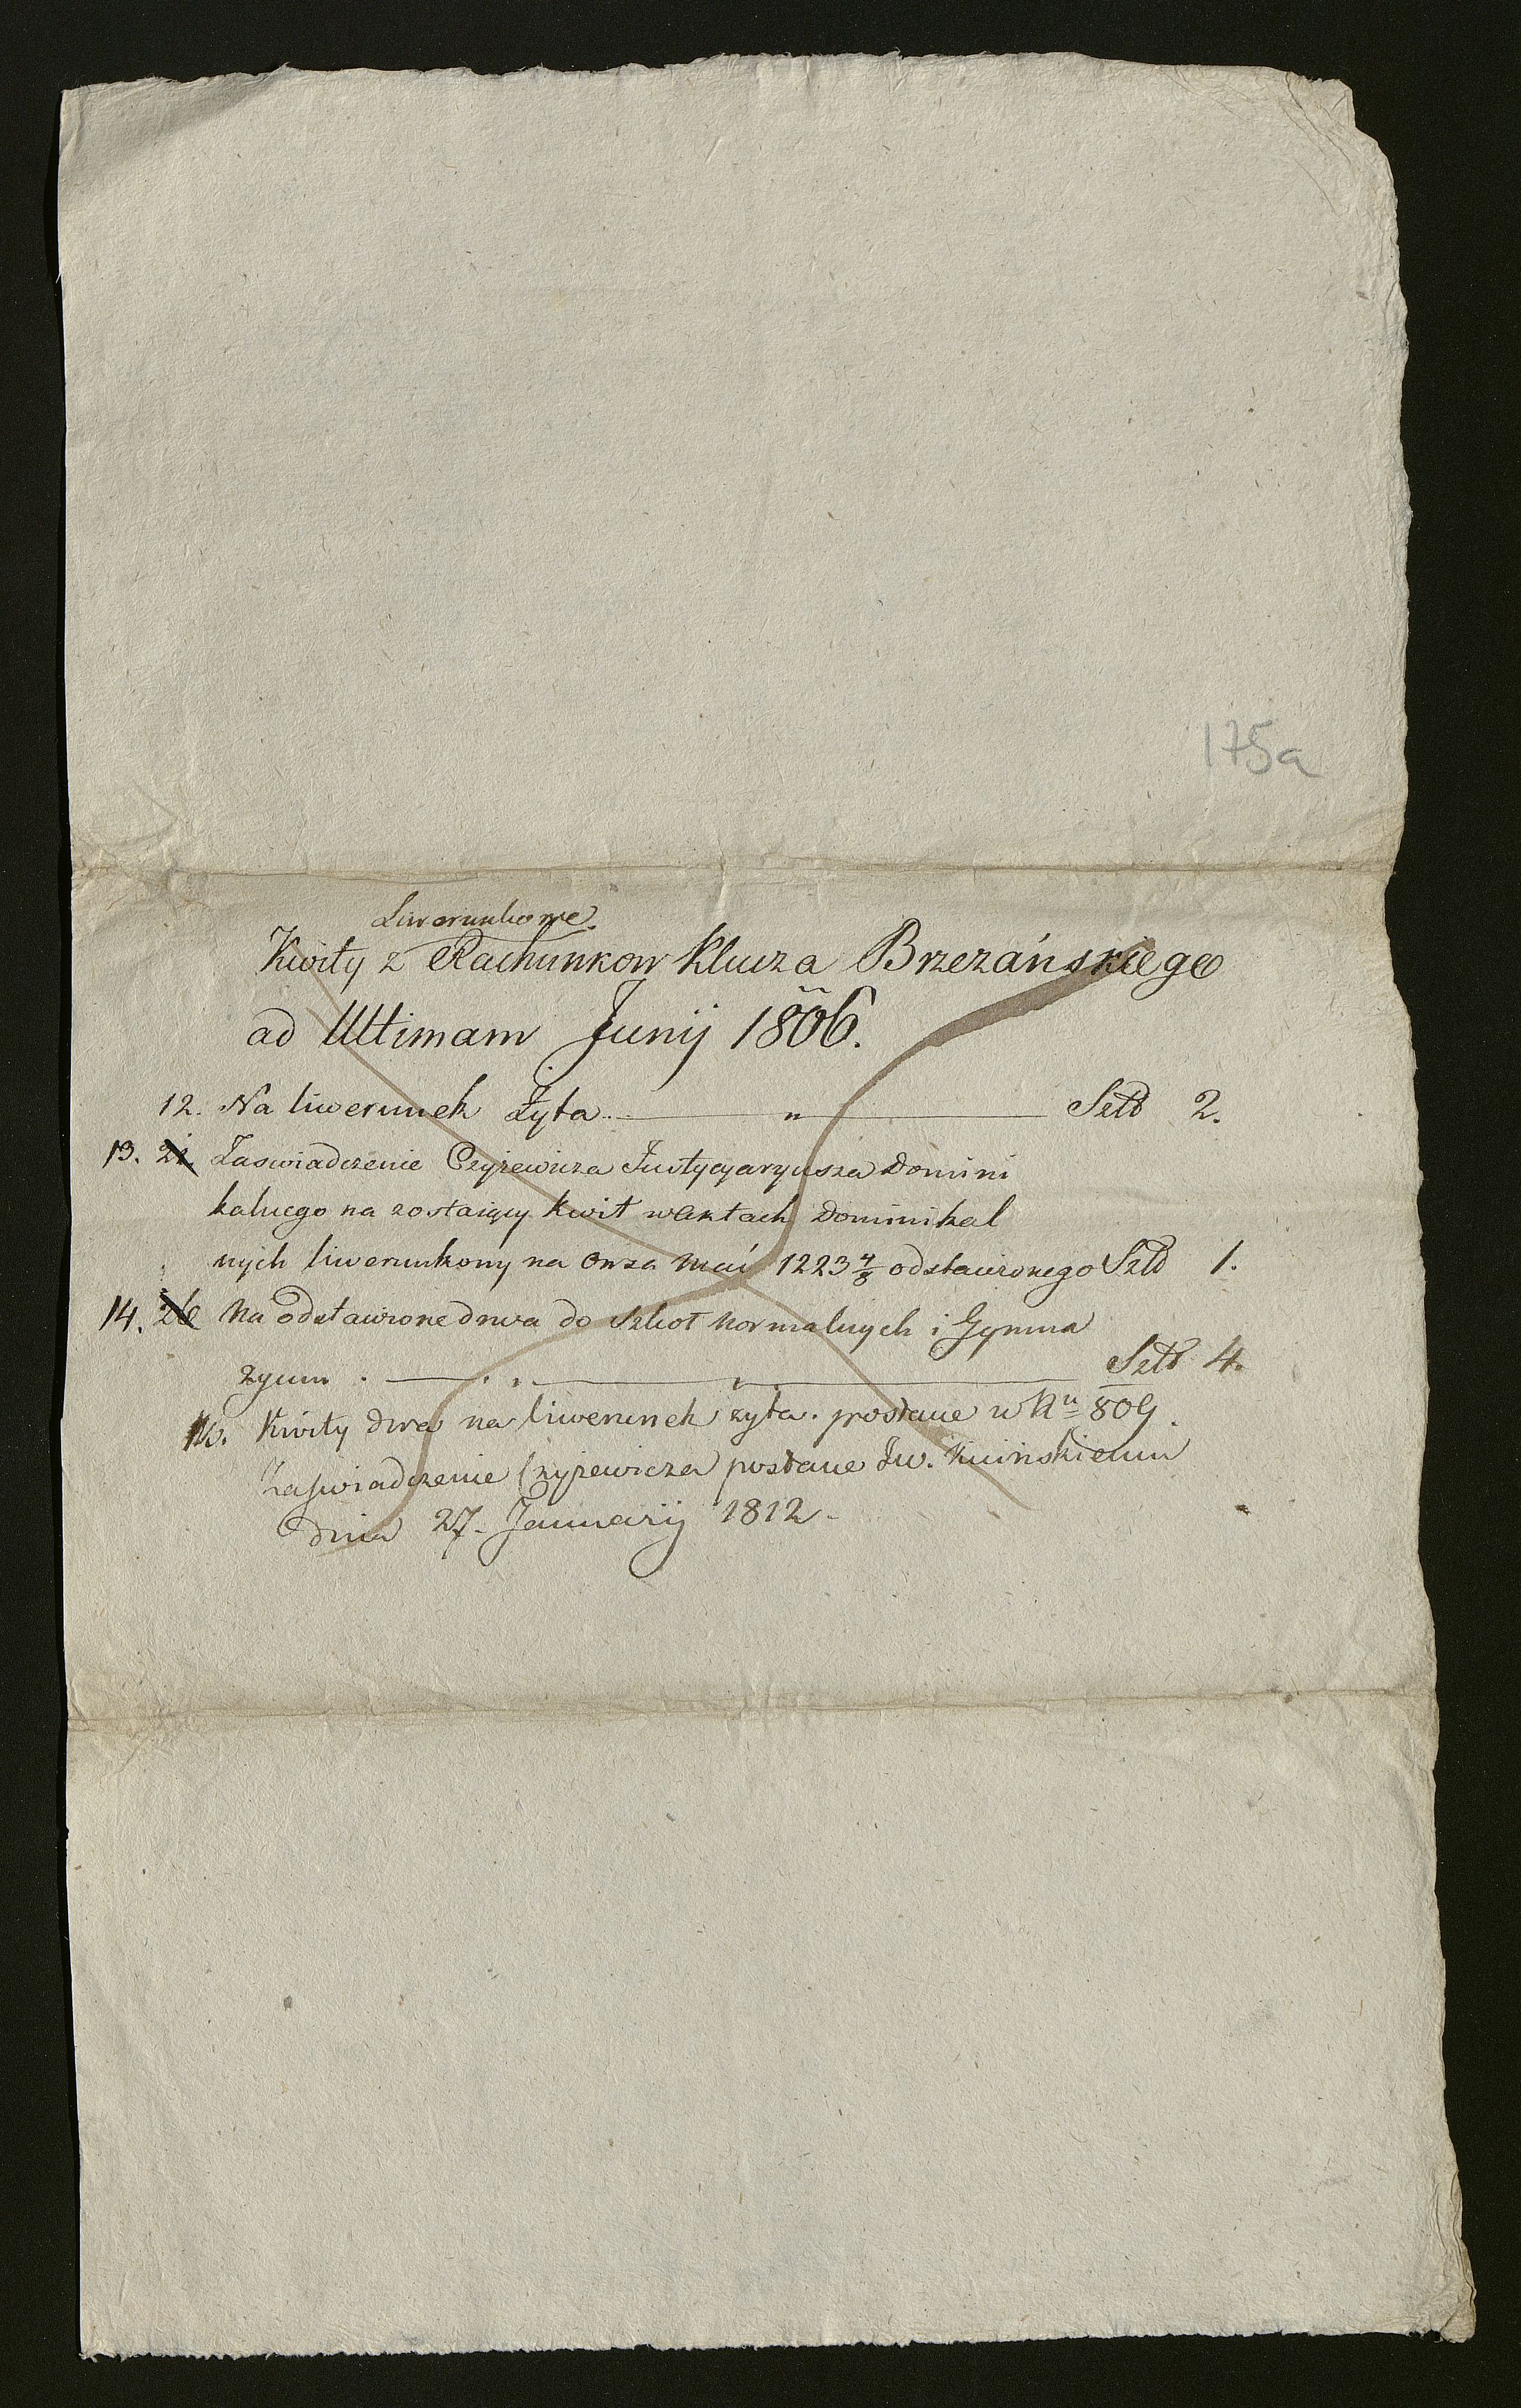 175a
Liwerunkowe.
Kwity z Rachunkow Klucza Brzezańskiego
ad Ultimam Junij 1806.
12. Na liwerunek Żyta. " Sztb 2.
13. 21. Zaswiadczenie Czyżewicza Justycyaryusza Domini
kalnego na zostaiący kwit w aktach Dominikal
nych liwerunkowy na Owsa 1223 4/8 odstawionego Sztb 1.
14. 26 Na odstawione drwa do Szkoł Normalnych i Gymna
zyum . " " Sztb 4.
Kwity dwa na liwerunek zyta. posłane w 809.
Zaswiadczenie Czyżewicza posłane Jw. Kuińskiemu
dnia 27. Januarij 1812.